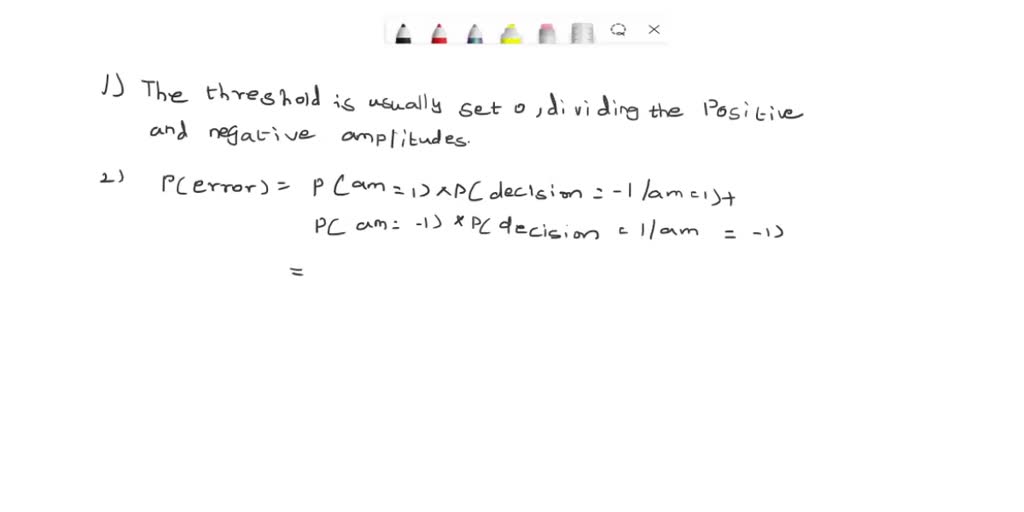 1) The threshold is usually set 0, dividing the Positive
and negative amplitudes.
2) P(error) = P(am = 1) × P(decision = -1 / am = 1) +
P(am = -1) × P(decision = 1 / am = -1)
=